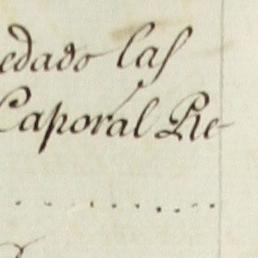 edado las
Caporál Re-